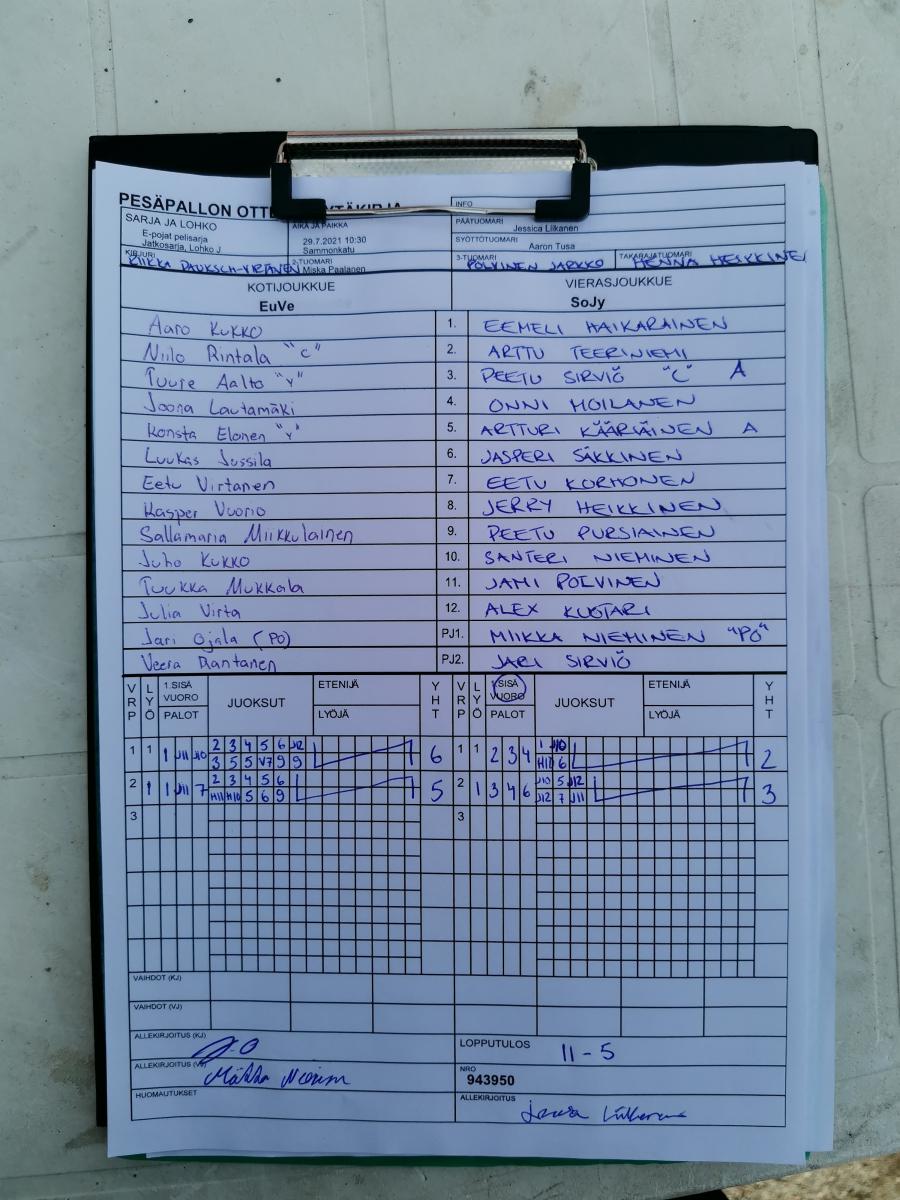 PESÄPALLON
INFO
SARJA JA LOHKO
E-pojat pelisarja
Jatkosarja, Lohko J
AIKA JA PAIKKA
29.7.2021 10:30
Sammonkatu
PÄÄTUOMARI
Jessica Liikanen
SYÖTTÖTUOMARI
Aaron Tusa
KIRJURI
KIIKKA PAUKSCH-VIRTANEN
2-TUOMARI
Miska Paalanen
3-TUOMARI
POLVINEN JARKKO
TAKARAJATUOMARI
HENNA HEIKKINEN
KOTIJOUKKUE
EuVe
VIERASJOUKKUE
SoJy
Aaro Kukko 1. EEMELI HAIKARAINEN
Niilo Rintala "C" 2. ARTTU TEERINIEMI
Tuure Aalto "V" 3. PEETU SIRVIÖ "C" A
Joona Lautamäki 4. ONNI MOILANEN
Konsta Elonen "V" 5. ARTTURI KÄÄRIÄINEN A
Luukas Jussila 6. JASPERI SÄKKINEN
Eetu Virtanen 7. EETU KORHONEN
Kasper Vuorio 8. JERRY HEIKKINEN
Sallamaria Miikkulainen 9. PEETU PURSIAINEN
Juho Kukko 10. SANTERI NIEMINEN
Tuukka Mukkala 11. JAMI POLVINEN
Julia Virta 12. ALEX KUOTARI
Jari Ojala (PO) PJ1. MIIKKA NIEMINEN "PO"
Veera Rantanen PJ2. JARI SIRVIÖ
VRP LYÖ 1.SISÄ VUORO PALOT JUOKSUT ETENIJÄ LYÖJÄ YHT VRP LYÖ 1.SISÄ VUORO PALOT JUOKSUT ETENIJÄ LYÖJÄ YHT
2 3 4 5 6 J12 1 J10
1 1 1 J11 J10 3 5 5 V7 9 9 6 1 1 2 3 4 6 2
2 3 4 5 6 J10 5 J12
2 1 1 J11 7 H11 H10 5 6 9 5 2 1 3 4 6 J12 7 J11 3
3 3
VAIHDOT (KJ)
VAIHDOT (VJ)
ALLEKIRJOITUS (KJ)
LOPPUTULOS 11-5
ALLEKIRJOITUS
NRO
943950
HUOMAUTUKSET
ALLEKIRJOITUS